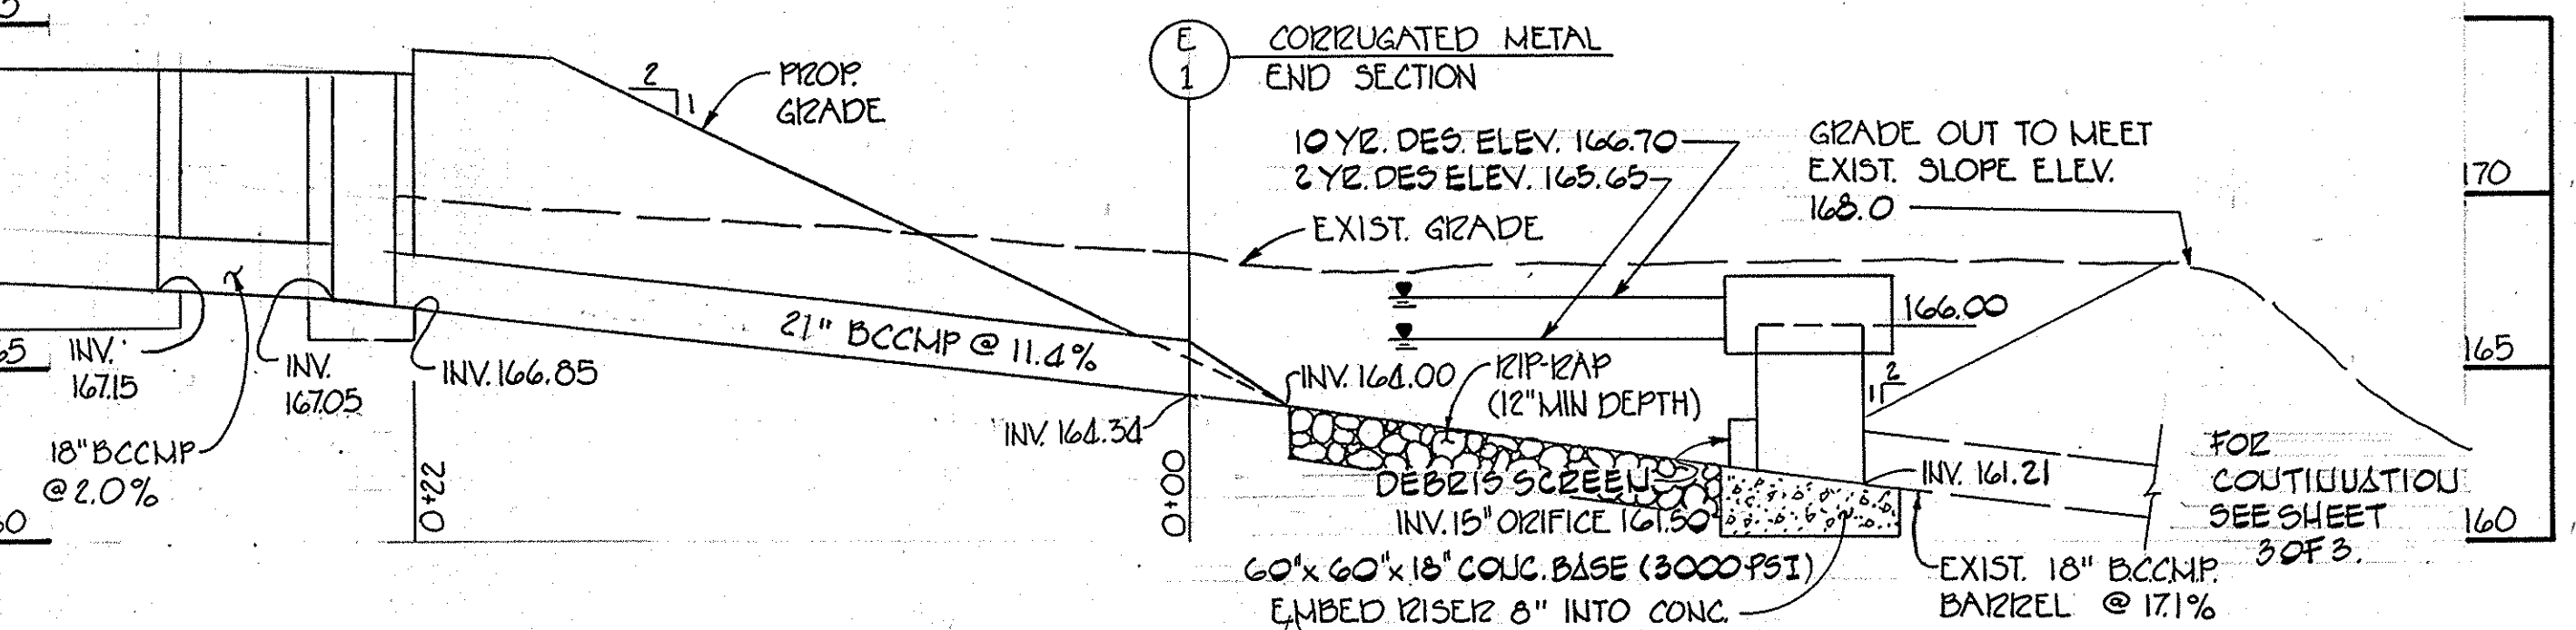 E
1
CORRUGATED METAL
END SECTION
2
1
PROP.
GRADE
10 YR. DES. ELEV. 166.70
2 YR. DES ELEV. 165.65
GRADE OUT TO MEET
EXIST. SLOPE ELEV.
168.0
170
EXIST. GRADE
166.00
165
INV.
167.15
INV.
167.05
INV. 166.85
21" BCCMP @ 11.4%
INV. 164.00
RIP-RAP
(12" MIN DEPTH)
2
1
INV. 164.34
18" BCCMP
@ 2.0%
0+22
0+00
DEBRIS SCREEN
INV. 15" ORIFICE 161.50
INV. 161.21
FOR
CONTINUATION
SEE SHEET
3 OF 3.
160
60" x 60" x 18" CONC. BASE (3000 PSI)
EMBED RISER 8" INTO CONC.
EXIST. 18" B.C.C.M.P.
BARREL @ 17.1%